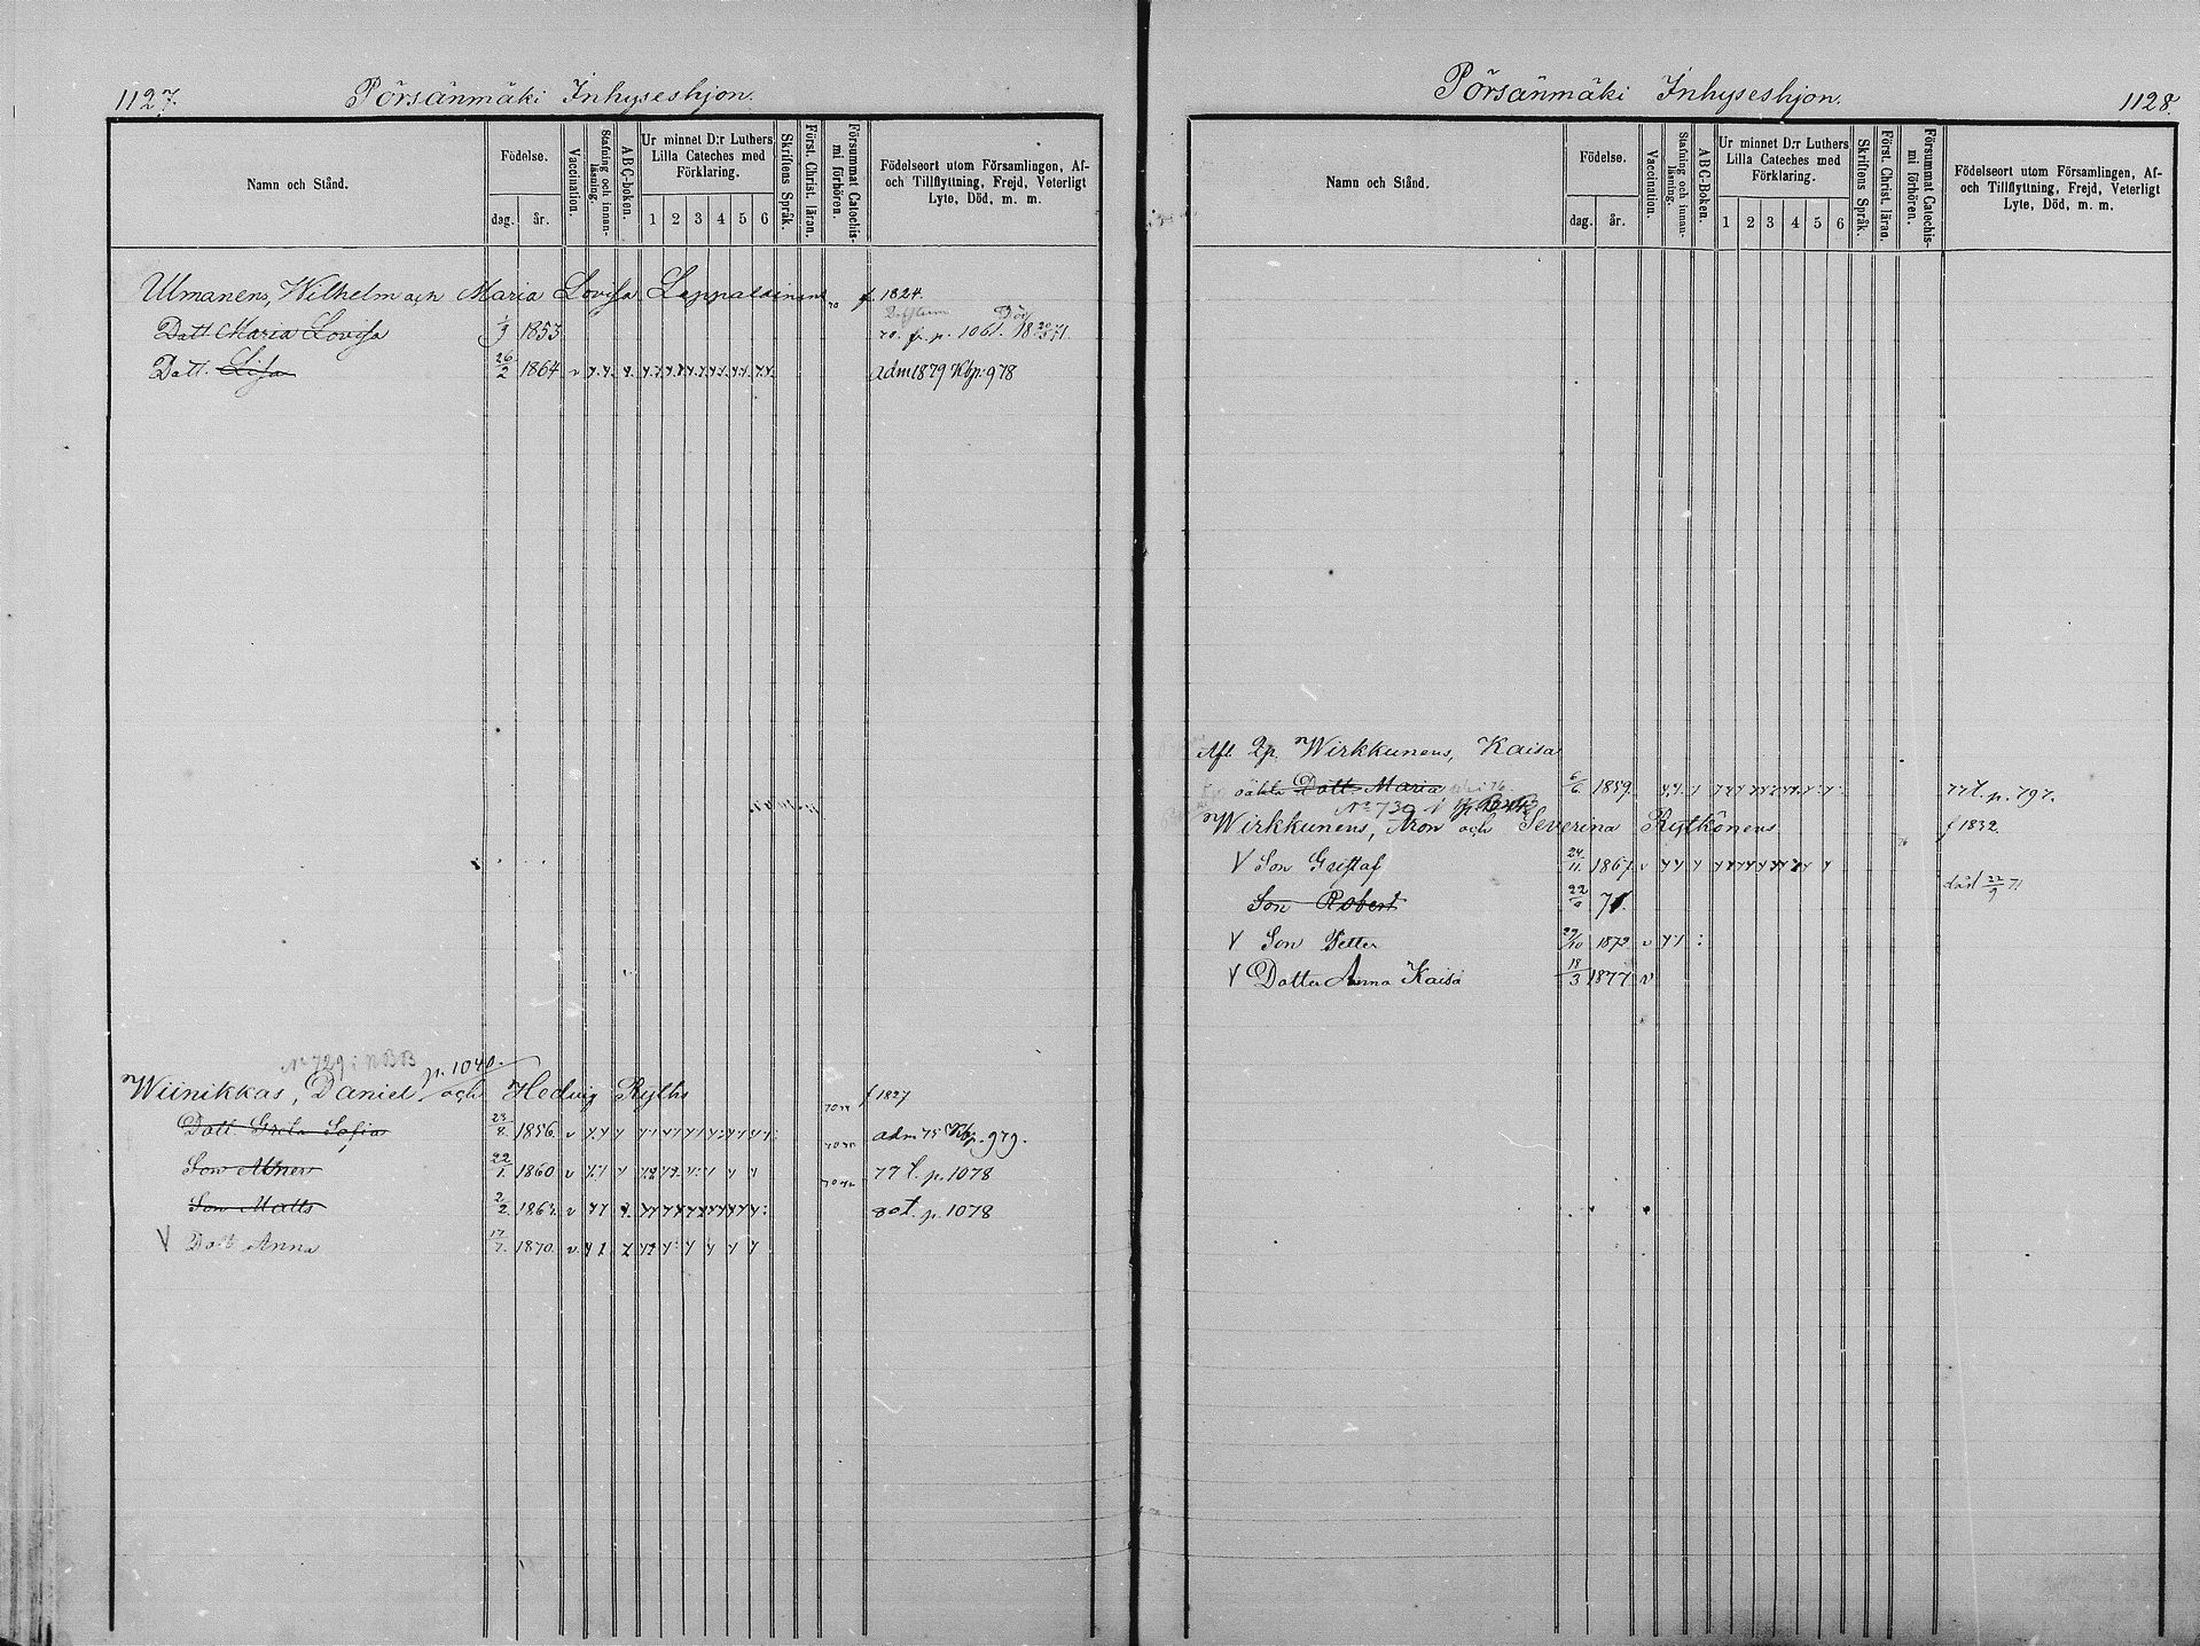 1127.
Pörsänmäki Inhyseshjon.
Namn och Stånd.
Födelse.
dag. år.
Vaccination.
Stafning och innanläsning.
ABC-boken.
Ur minnet D:r Luthers Lilla Cateches med Förklaring.
1 2 3 4 5 6
Skriftens Språk.
Först. Christ. läran.
Försummat Catechismi förhören.
Födelseort utom Församlingen, Af- och Tillflyttning, Frejd, Veterligt Lyte, Död, m. m.
Ulmanens, Wilhelm och Maria Lovisa Leppäläinens f. 1824.
Dött. Maria Lovisa 1853 70. fr. p. 1061. Död
Dött. Lisa 26/2 1864 v adm 1879 Kbp: 978
No 729 i NBB p. 1040.
Wiinikkas, Daniel och Hedvig Ryths f 1827
Dött. Greta Sofia 1856. v adm 75 Kbp. 979.
Son Abner 22/1. 1860 v 77 t. p. 1078
Son Matts 2/2. v 80 t. p. 1078
V Dott Anna 17/7. 1870. v.
1128.
Pörsänmäki Inhyseshjon.
Namn och Stånd.
Födelse.
dag. år.
Vaccination.
Stafning och innanläsning.
ABC-Boken.
Ur minnet D:r Luthers Lilla Cateches med Förklaring.
1 2 3 4 5 6
Skriftens Språk.
Först. Christ. läran.
Försummat Catechismi förhören.
Födelseort utom Församlingen, Af- och Tillflyttning, Frejd, Veterligt Lyte, Död, m. m.
Afl. Wirkkunens, Kaisa
oäkta Dött. Maria 6/6. 1859. 77 t. p. 797.
No 730
Wirkkunens, Aron och Severina Rytkönens f 1832.
V Son Gustaf 24/11. 1867. v
Son Robert 71. död 22/9 71
V Son Petter 29/10 1872 v
V Dotter Anna Kaisa 18/3 1877 v